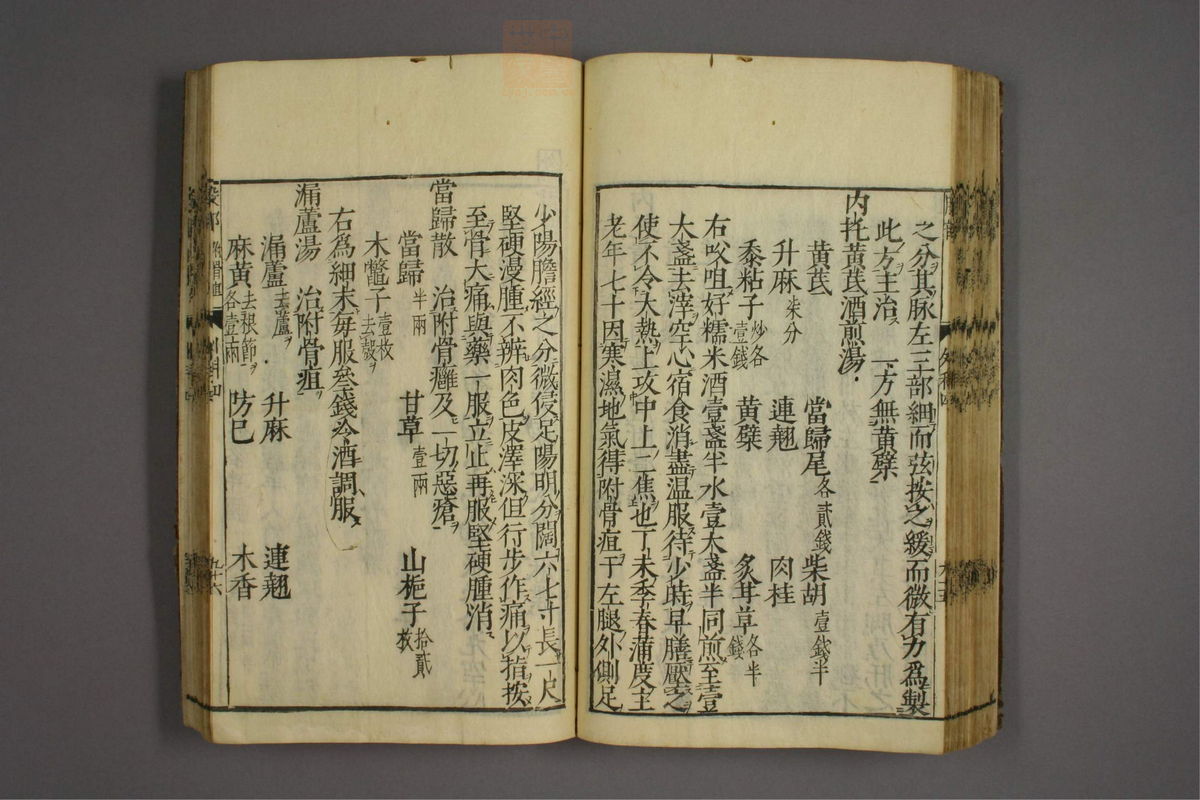 之分其脉左三部細而弦按之緩而微有力爲製
此方主治 一方無黄蘗
内托黄茋酒煎湯
黄茋 當歸尾各貳錢 柴胡壹錢半
升麻柒分 連翹 肉桂
黍粘子炒各壹錢 黄蘗 炙甘草各半錢
右㕮咀好糯米酒壹盞半水壹大盞半同煎至壹
大盞去滓空心宿食消盡温服待少時早膳壓之
使不令大熱上攻中上二焦也丁未季春蒲度主
老年七十因寒濕地氣得附骨疽于左腿外側足
少陽膽經之分微侵足陽明分闊六七寸長一尺
堅硬漫腫不辨肉色皮澤深但行步作痛以指按
至骨大痛與藥一服立止再服堅硬腫消
當歸散 治附骨癰及一切惡瘡
當歸半兩 甘草壹兩 山梔子拾貳枚
木鼈子壹枚去殼
右爲細末每服叁錢冷酒調服
漏蘆湯 治附骨疽
漏蘆去蘆 升麻 連翹
麻黄去根節各壹兩 防巳 木香
九十六